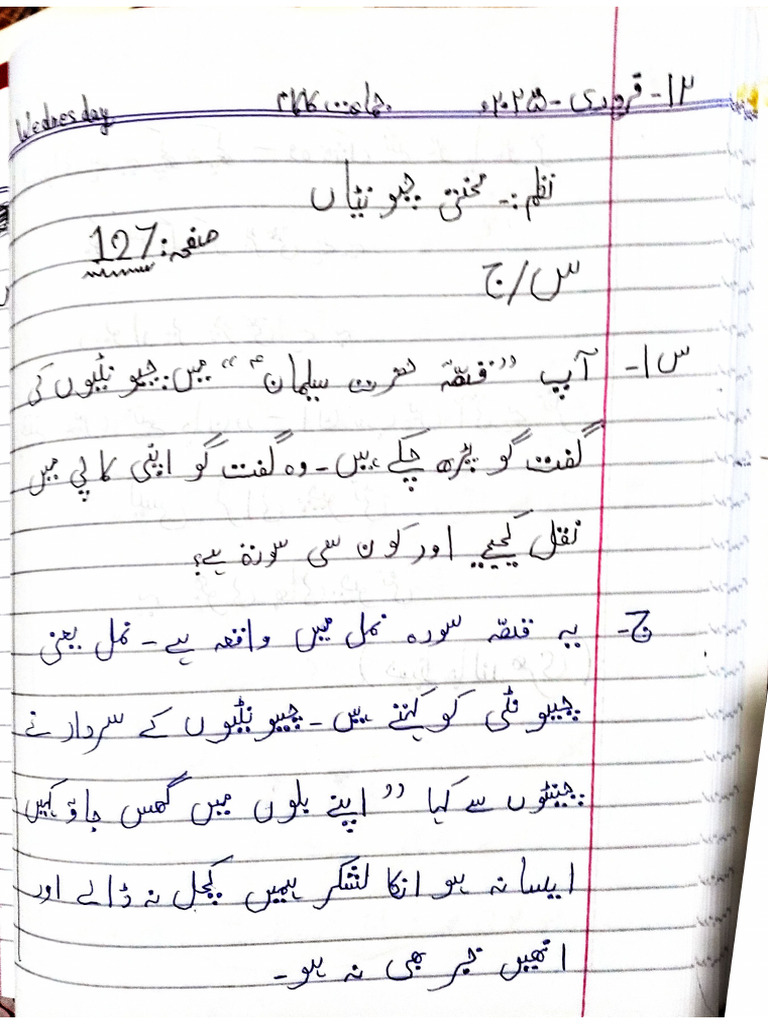 ۱۲- فروری - ۲۰۲۵ء جماعت کا کام Wednesday
نظم:- محنتی چیونٹیاں
صفحہ: 127
س/ج
س۱- آپ "قصّہ حضرت سلیمانؑ" میں چیونٹیوں کی
گفت گو پڑھ چکے ہیں - وہ گفت گو اپنی کاپی میں
نقل کیجیے اور کون سی سورۃ ہے؟
ج- یہ قصّہ سورہ نمل میں واقعہ ہے - نمل یعنی
چیونٹی کو کہتے ہیں - چیونٹیوں کے سردار نے
چینٹوں سے کہا " اپنے بلوں میں گھس جاؤ کہیں
ایسا نہ ہو انکا لشکر ہمیں کچل نہ ڈالے اور
انھیں خبر بھی نہ ہو -